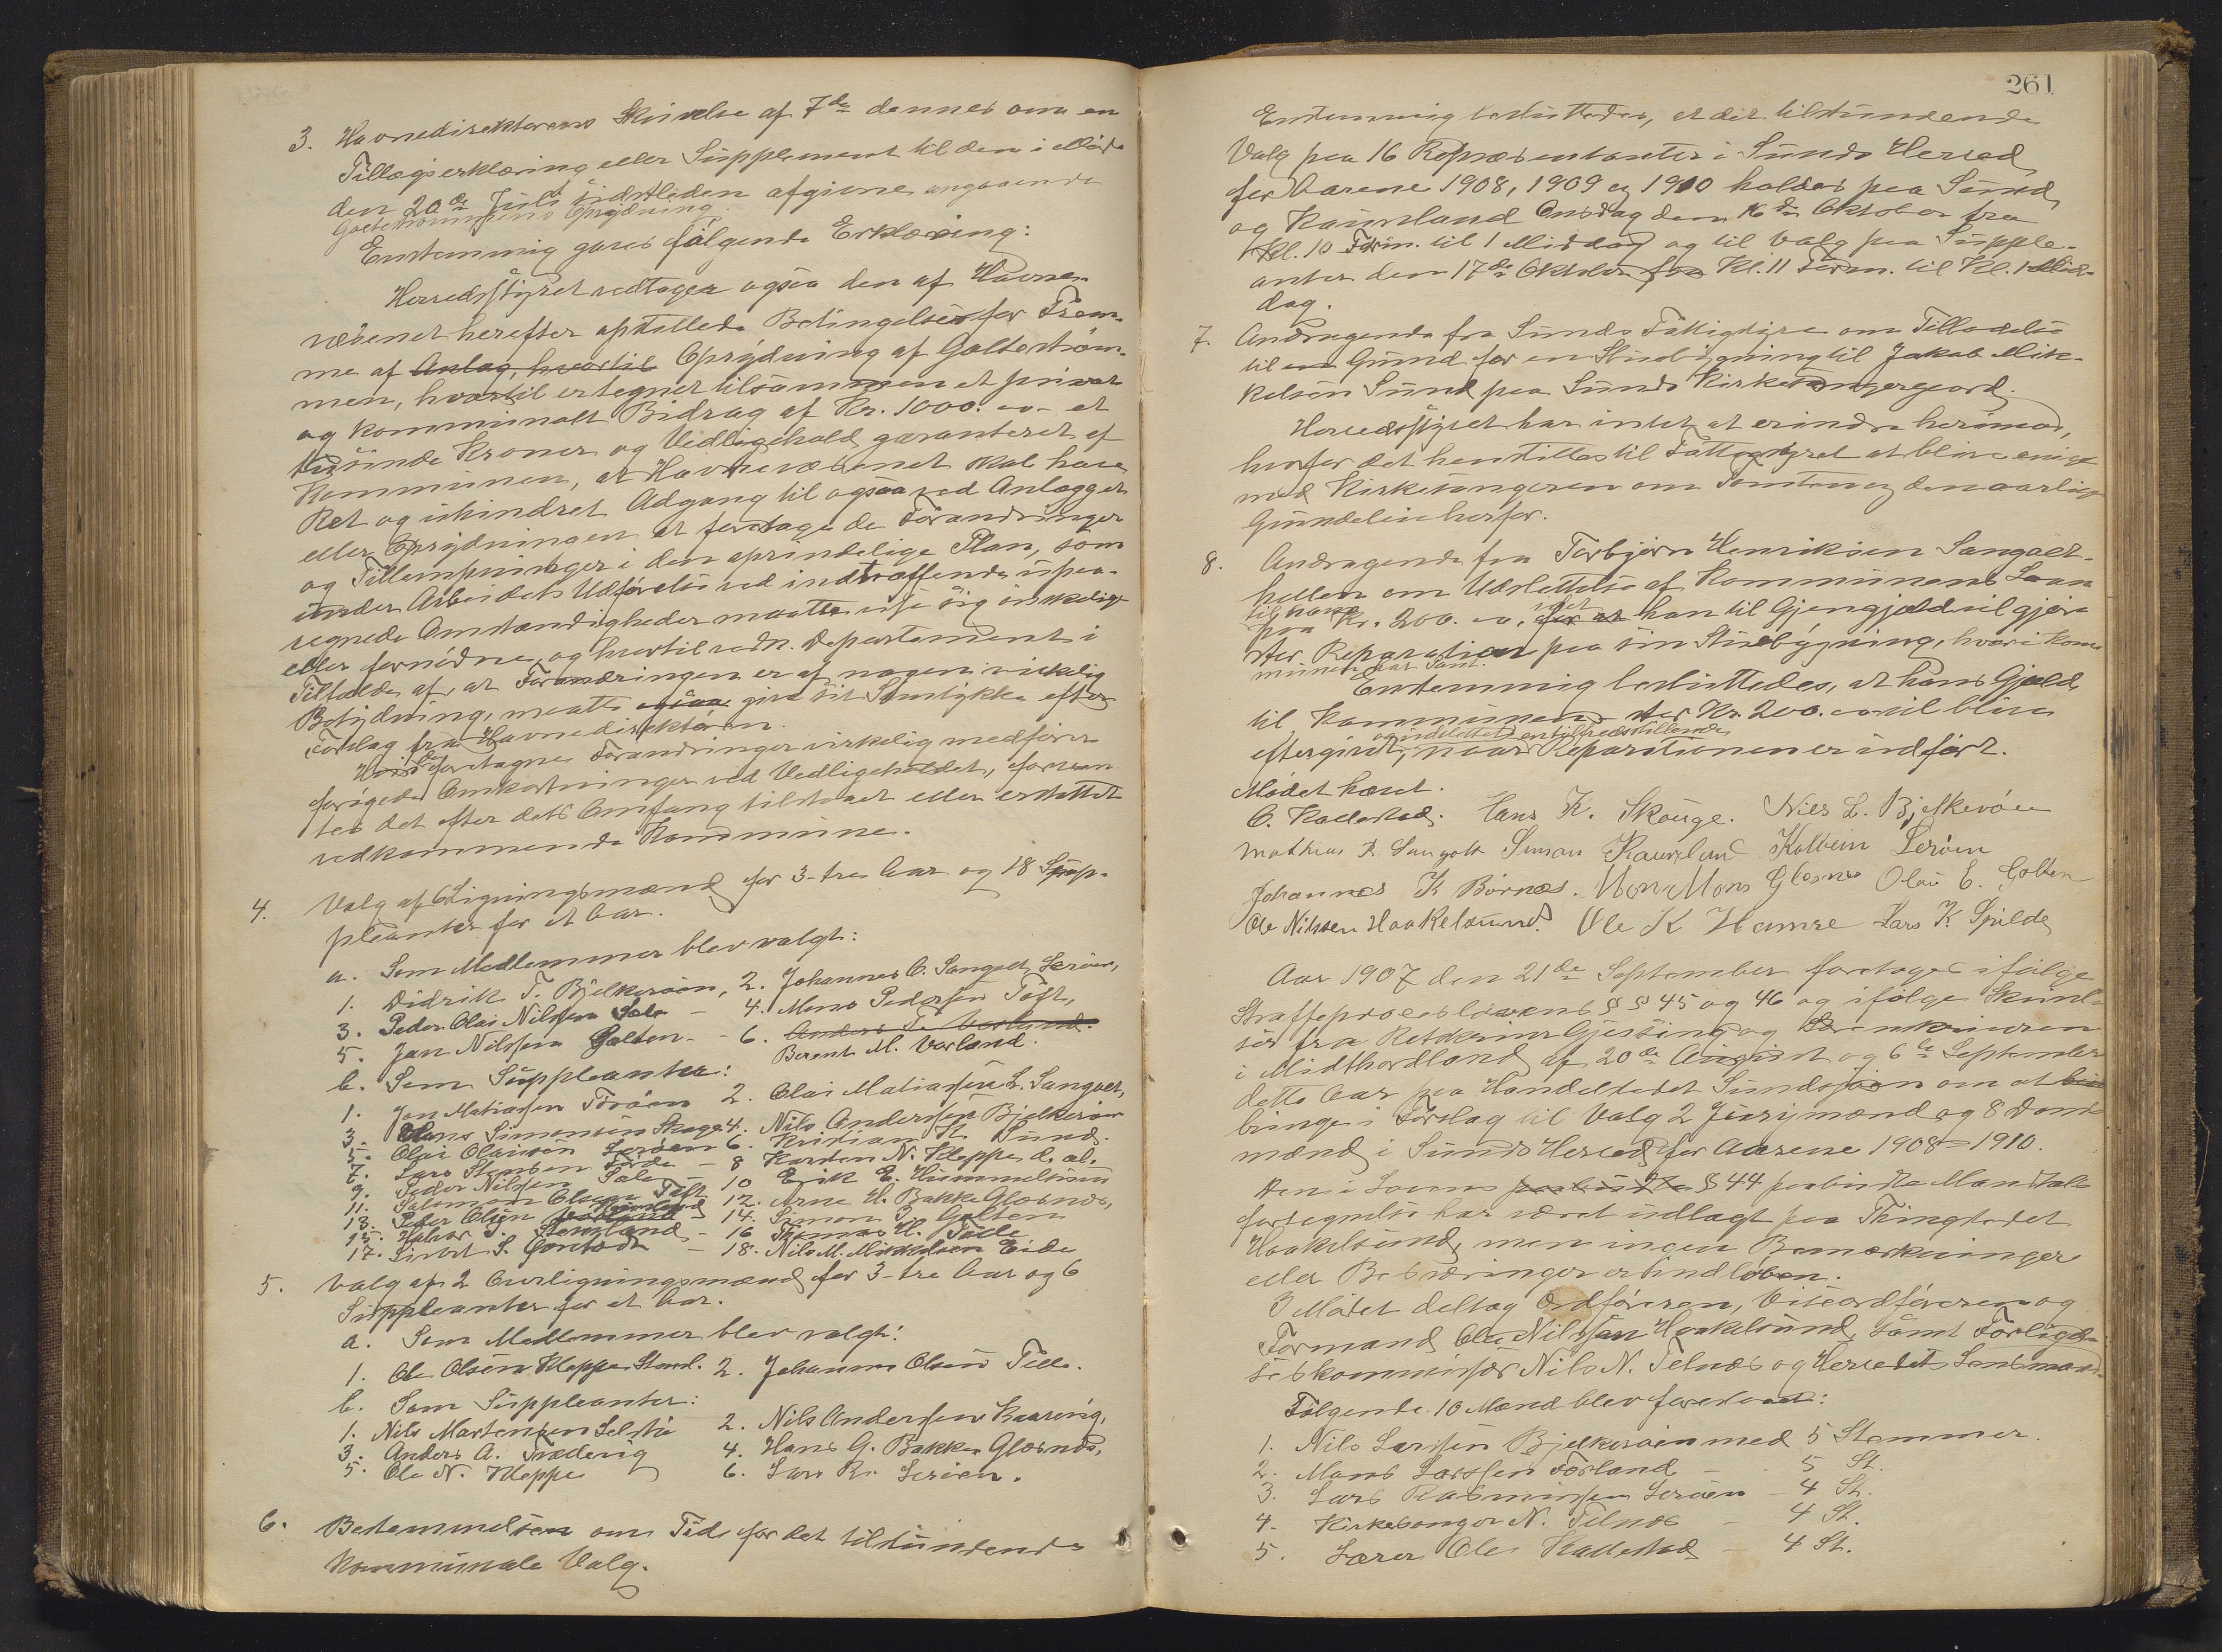 3. Havnedirektørens Skrivelse af 7de dennes om en
Tillægserklæring eller Supplement til den i Møde
den 20de Juli sidstleden afgivne angaaende
Goltestrømmens Oprydning.
Enstemmig gaves følgende Erklæring:
Herredsstyret vedtager ogsaa den af Havne-
væsenet herefter opstillede Betingelser for Frem-
me af Anlæg, hvortil Oprydning af Goltestrøm-
men, hvortil er tegnet tilsammen et privat
og kommunalt Bidrag af Kr. 1000. - et
tusinde Kroner og Vedligehold garanteret af
Kommunen, at Havnevæsenet skal have
Ret og uhindret Adgang til ogsaa ved Anlægget
eller Oprydningen at foretage de Forandringer
og Tillempninger i den oprindelige Plan, som
under Arbeidets Udførelse ved indtræffende upaa-
regnede Omstændigheder maatte vise sig ønskelige
eller fornødne, og hvortil vedk. Departement i
Tilfælde af, at Forandringen er af nogen virkelig
Betydning, maatte ogsaa give sit Samtykke efter
Forslag fra Havnedirektøren.
Hvis de foretagne Forandringer virkelig medfører
forøgede Omkostninger ved Vedligeholdet,
tes det efter dets Omfang tilstaaet eller erstattet
vedkommende Kommune.
4. Valg af 6 Ligningsmænd for 3-tre Aar og 18 Sup-
pleanter for et Aar.
a. Som Medlemmer blev valgt:
1. Didrik T. Bjelkerøen, 2. Johannes O. Sangolt, Lerøen,
3. Peder Olai Nilssen Sele - 4. Mons Pedersen Tøft,
5. Jan Nilssen Golten - 6. Anders
Berent M. Vorland.
b. Som Suppleanter:
1. Jon Matiassen Toröen 2. Olai Matiassen L. Sangolt,
3. Hans Simonsen Skoge 4. Nils Anderssen Bjelkerøen
5. Olai Olaisen Lerøen 6. Kristian K. Sund.
7. Lars Stensen Førde - 8 Karsten N. Kleppe d. æl.
9. Peder Nilssen Sale - 10 Erik E. Hummelsund
11. Salomon Olsen Tøft 12. Arne H. Bakke Glesnes,
13. Peder Olsen - 14. Simon J. Golten
15. Halvor J. - 16 Thomas H. Telle
17. Sivert S. - 18. Nils M. Mikkelsen Eide
5. Valg af 2 Overligningsmænd for 3-tre Aar og 6
Suppleanter for et Aar.
a. Som Medlemmer blev valgt:
1. Ole Olsen Kleppe Stord. 2. Johannes Olsen Telle.
b. Som Suppleanter:
1. Nils Martensen Selstø 2. Nils Anderssen Kaarevig,
3. Anders A. Trælevig 4. Hans G. Bakken Glesnes,
5. Ole N. Kleppe 6. Lars R. Lerøen.
6. Bestemmelsen om Tid for det tilstundende
kommunale Valg.
261
Enstemmig besluttedes, at det tilstundende
Valg paa 16 Repræsentanter i Sunds Herred
for Aarene 1908, 1909 og 1910 holdes paa Sund
og Kausland Onsdag den 16de Oktober fra
Kl. 10 Form. til 1 Middag og til Valg paa Supple-
anter den 17de Oktober fra Kl. 11 Form. til Kl. 1 Mid-
dag.
7. Andragende fra Sunds Fattigstyre om Tilladelse
til en Grund for en Stuebygning til Jakob Mik-
kelsen Sund paa Sunds Kirkesangergaard.
Herredsstyret har intet at erindre herimod,
hvorfor det henstilles til Fattigstyret at blive enige
med Kirkesangeren om Tomten og den aarlige
Grundleie herfor.
8. Andragende fra Torbjørn Henriksen Sangolt-
hellen om Udslettelse af Kommunens Laan
til ham
paa Kr. 200. -, idet for at han til Gjengjæld vil gjøre
stor Reparation paa sin Stuebygning, hvori Kom-
munen har Pant.
Enstemmig besluttedes, at hans Gjæld
til Kommunen stor Kr. 200. - vil blive
og istedet entilfredsstillende
eftergivet, naar Reparationen er indført.
Mødet hævet.
O. Kallestad. Hans K. Skouge. Nils L. Bjelkerøen
Mathias R. Sangolt Simon Kausland Kolbein Lerøen
Johannes K Børnes. Mons Mons Glesnes Olai E. Golten
Ole Nilssen Haakelsund. Ole K Hamre Lars K. Spilde
Aar 1907 den 21de September foretoges ifølge
Straffeproceslovens §§ 45 og 46 og ifølge Skrivel-
ser fra Retskriver Gjessing og Sorenskriveren
i Midthordland af 20de August og 6te September
dette Aar paa Handelstedet Sundsøen om at
bringe i Forslag til Valg 2 Jurymænd og 8 Doms-
mænd i Sunds Herred for Aarene 1908-1910.
Den i Lovens paabudte § 44 paabudte Mandtals
fortegnelse har været udlagt paa Thingstedet
Haakelsund, men ingen Bemærkninger
eller Besværinger er indløben.
I Mødet deltog Ordføreren, Viceordføreren og
Formand Ole Nilssen Haakelsund, samt Forligel-
seskommissær Nils N. Telnæs og Herredets Lensmand.
Følgende 10 Mænd blev foreslaaet:
1. Nils Larssen Bjelkerøen med 5 Stemmer.
2. Mons Larssen Forland - 5 St.
3. Lars Rasmussen Lerøen - 4 St.
4. Kirkesanger N. Telnæs - 4 St.
5. Lærer Ole Kallestad - 4 St.